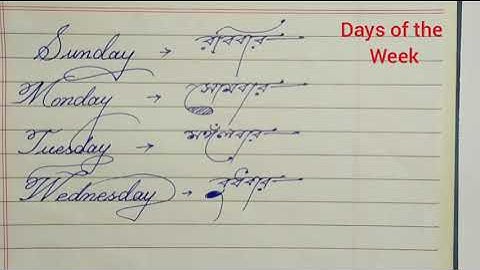 Days of the
Week
Sunday → রবিবার
Monday → সোমবার
Tuesday → মঙ্গলবার
Wednesday → বুধবার